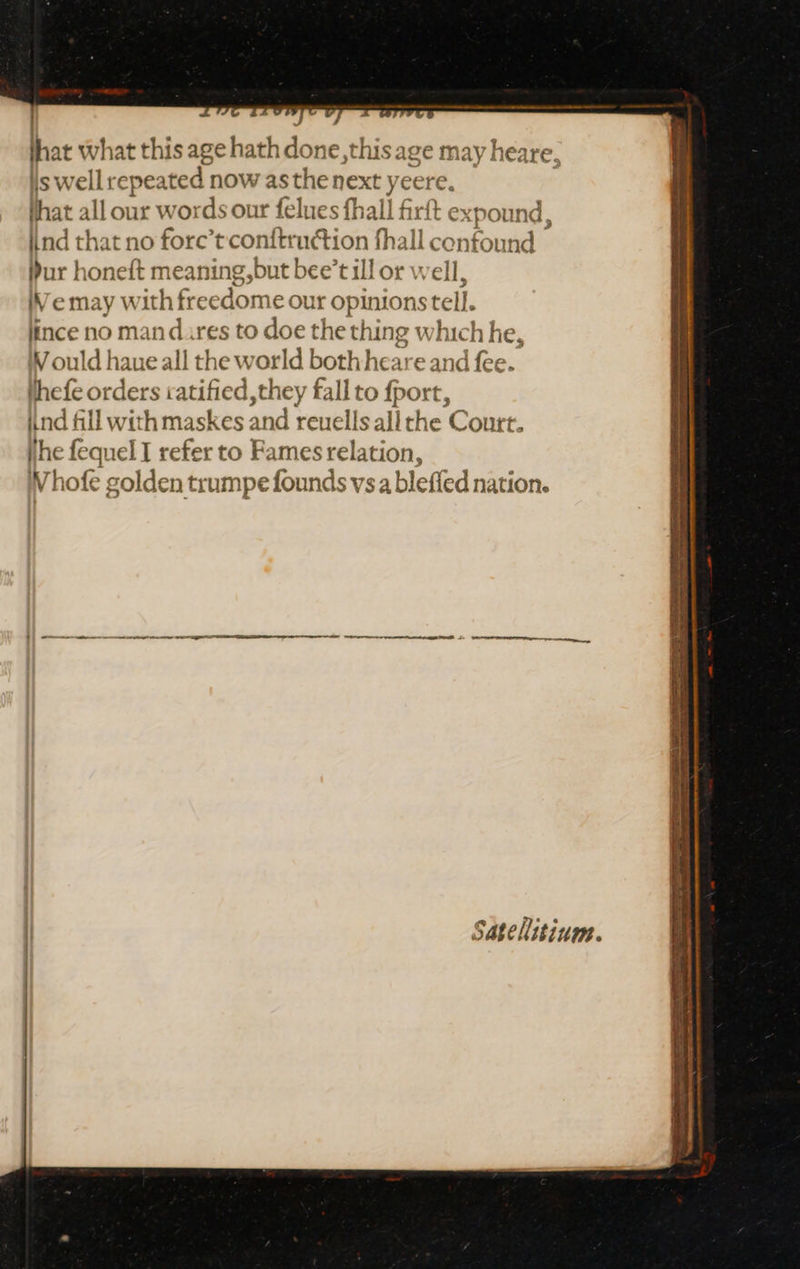 hat what this age hath done,this age may heare,
s well repeated now as the next yeere.
hat all our words our ſelues ſhall firſt expound,
nd that no forc’t conſtruction ſhall confound
ur honeſt meaning,but bee’t ill or well,
We may with freedome our opinions tell.
ince no man d res to doe the thing which he,
Would haue all the world both heare and ſee.
heſe orders ratified,they fall to ſport,
nd fill with maskes and reuells all the Court.
he ſequel I refer to Fames relation,
Whoſe golden trumpe ſounds vs a bleſſed nation.
Satellitium.